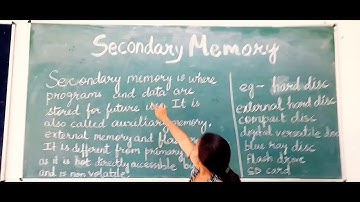 Secondary Memory
Secondary memory is where
programs and data are
stored for future use. It is
also called auxiliary memory,
external memory and
It is different from primary
as it is not directly accessible by
and is non volatile
eg- hard disc
external hard disc
compact disc
digital versatile disc
blue ray disc
flash drove
SD card